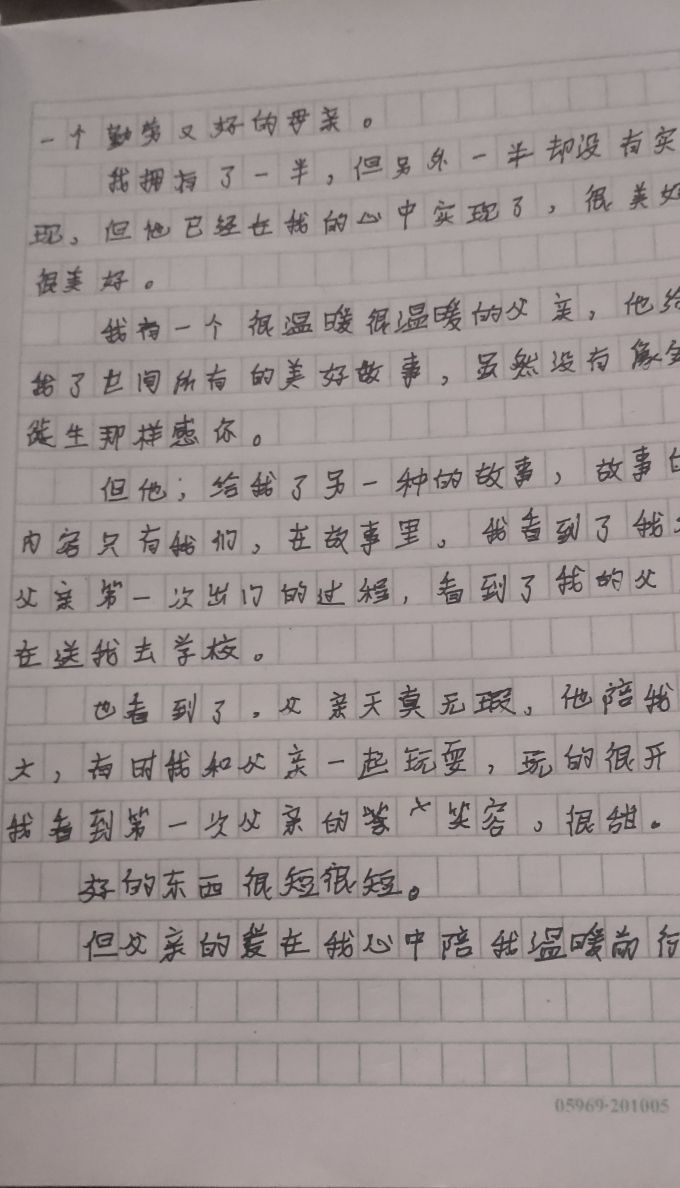 一个勤劳又好的母亲。
我拥有了一半，但另外一半却没有实
现，但他已经在我的心中实现了，很美好
很美好。
我有一个很温暖很温暖的父亲，他给
我了世间所有的美好故事，虽然没有像
生那样感
但他；给我了另一种的故事，故事的
内容只有我们，在故事里。我看到了我
父亲第一次出门的过程，看到了我的父
在送我去学校。
也看到了。父亲天真无瑕、他陪我
大，有时我和父亲一起玩耍，玩的很开
我看到第一次父亲的笑容，很甜。
好的东西很短很短。
但父亲的爱在我心中陪我温暖前行
05969·201005